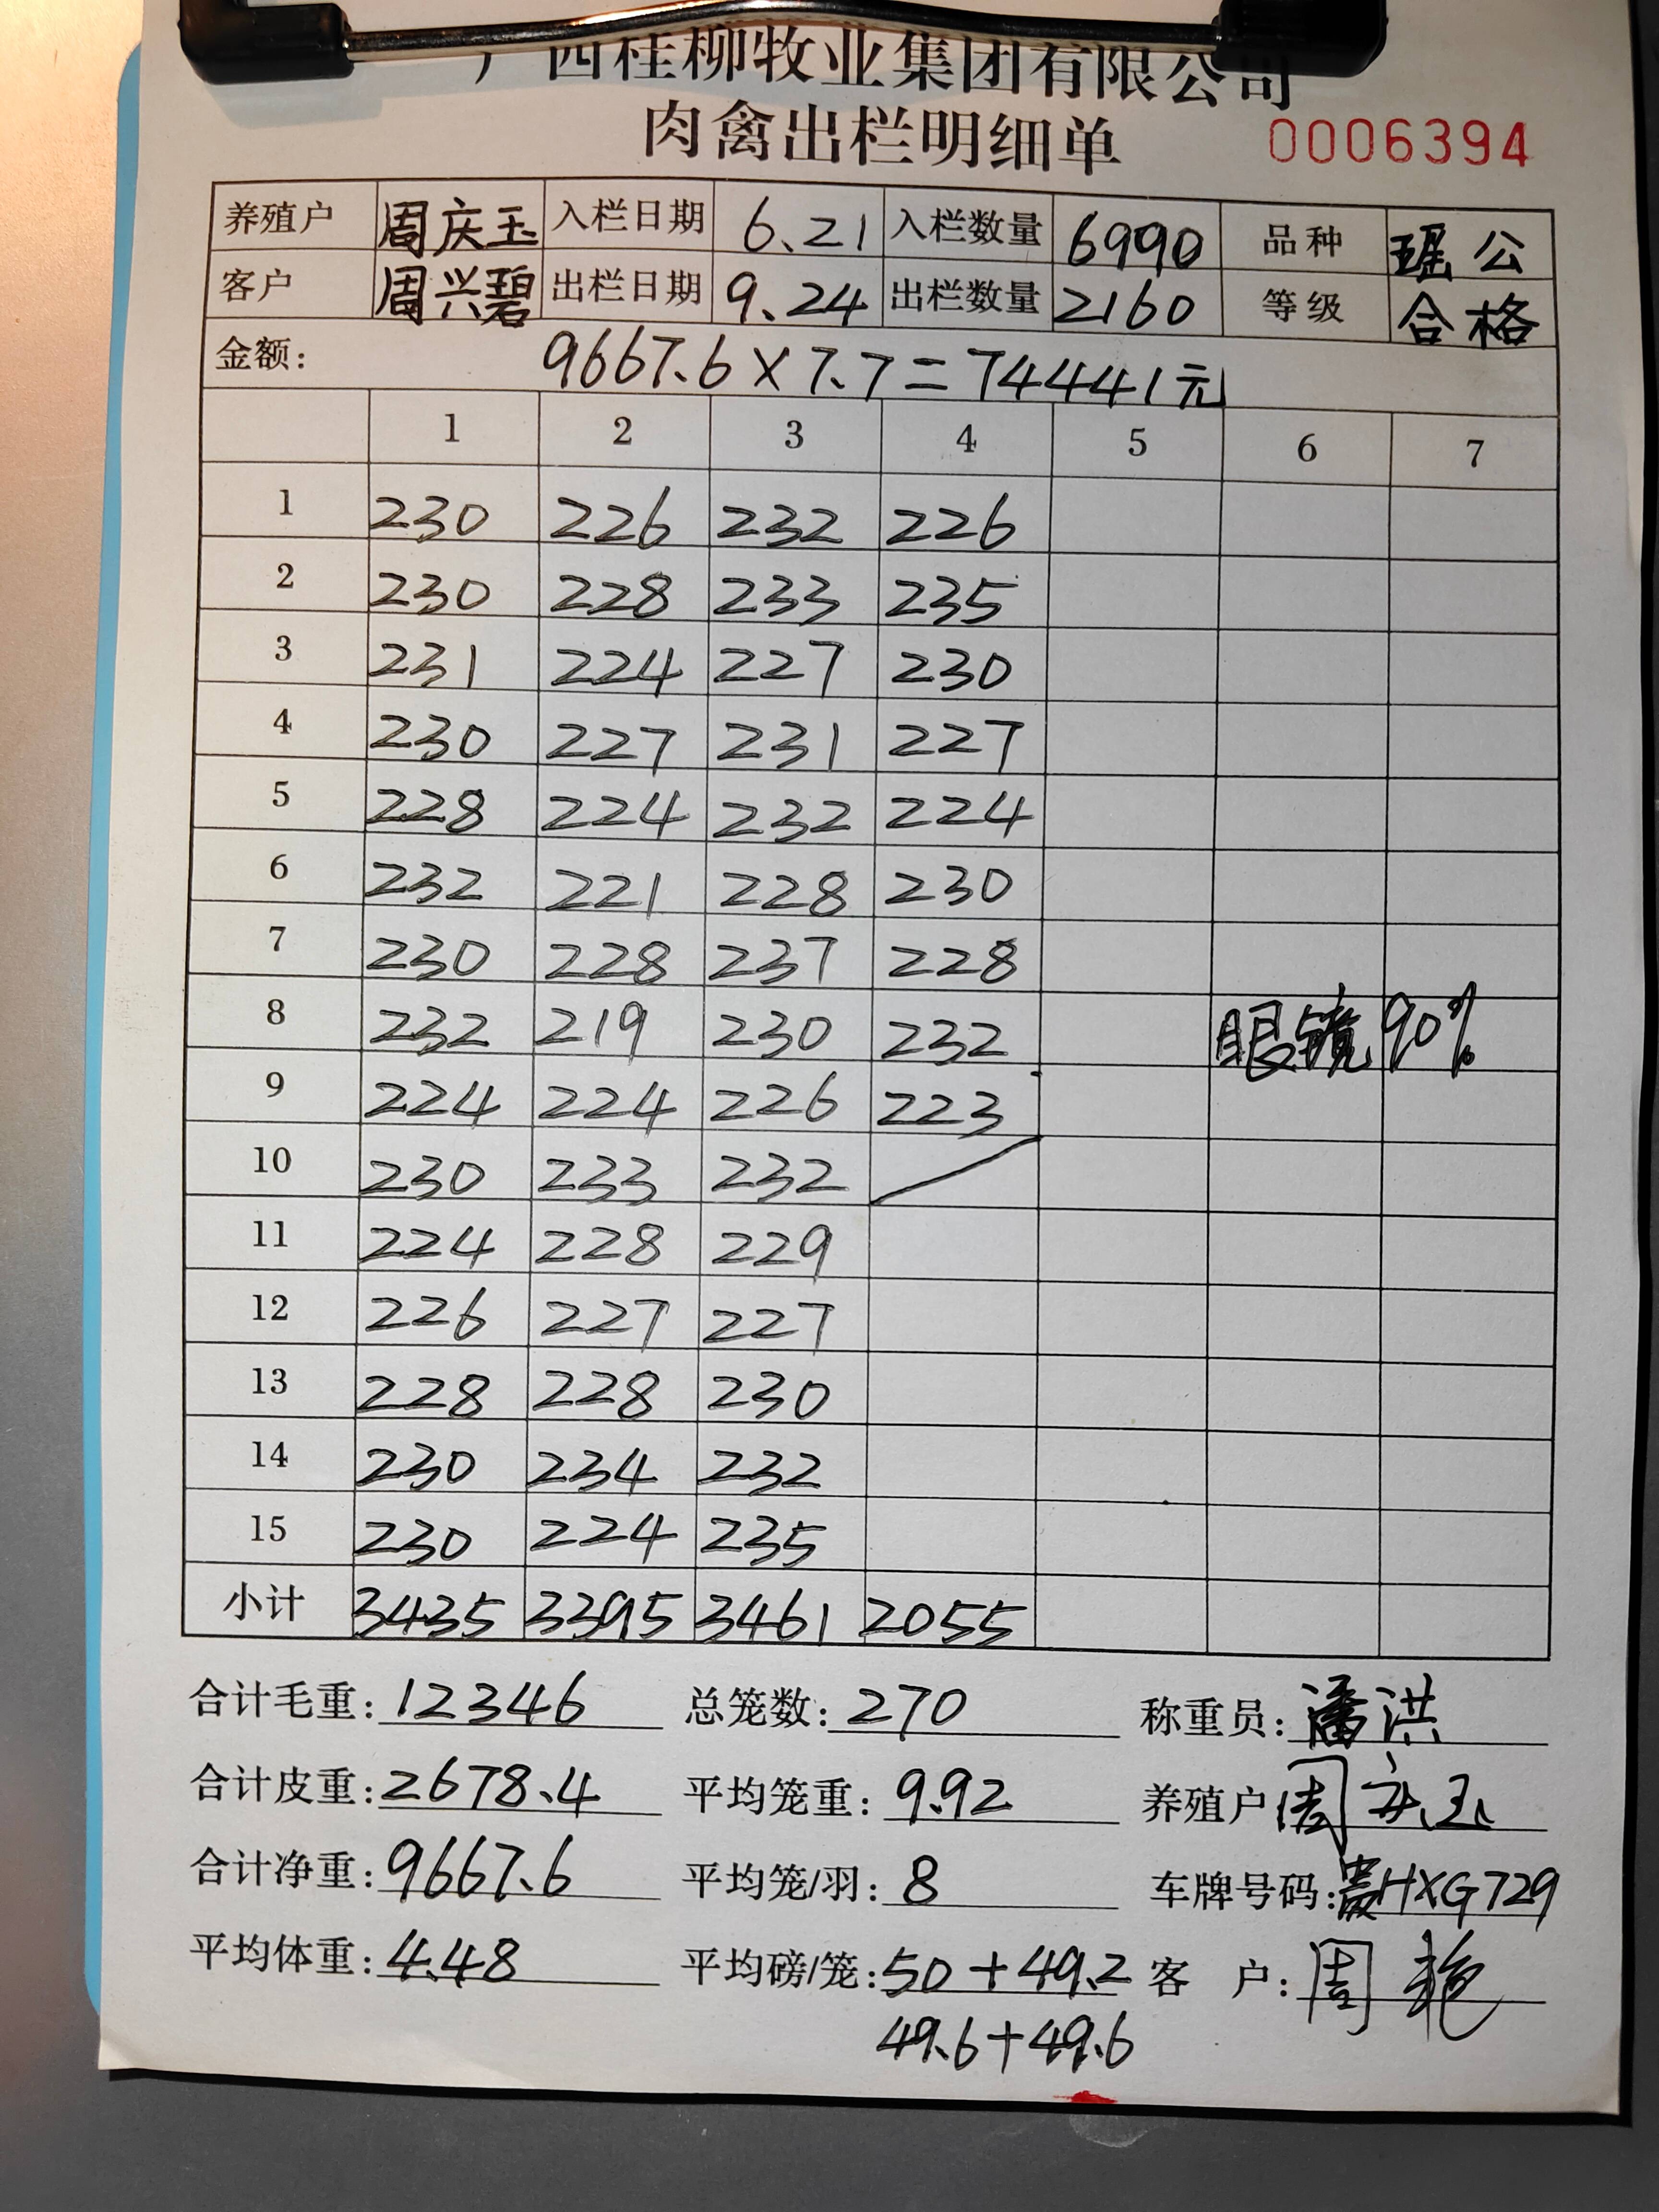 广西桂柳牧业集团有限公司
肉禽出栏明细单 0006394
养殖户 周庆玉 入栏日期 6.21 入栏数量 6990 品种 瑶公
客户 周兴碧 出栏日期 9.24 出栏数量 2160 等级 合格
金额: 9667.6×7.7=74441元
1 2 3 4 5 6 7
1 230 226 232 226
2 230 228 233 235
3 231 224 227 230
4 230 227 231 227
5 228 224 232 224
6 232 221 228 230
7 230 228 237 228
8 232 219 230 232 眼镜90%
9 224 224 226 223
10 230 233 232
11 224 228 229
12 226 227 227
13 228 228 230
14 230 234 232
15 230 224 235
小计 3435 3395 3461 2055
合计毛重: 12346 总笼数: 270 称重员: 潘洪
合计皮重: 2678.4 平均笼重: 9.92 养殖户 周庆玉
合计净重: 9667.6 平均笼/羽: 8 车牌号码: 贵HXG729
平均体重: 4.48 平均磅/笼: 50+49.2 客 户: 周艳
49.6+49.6